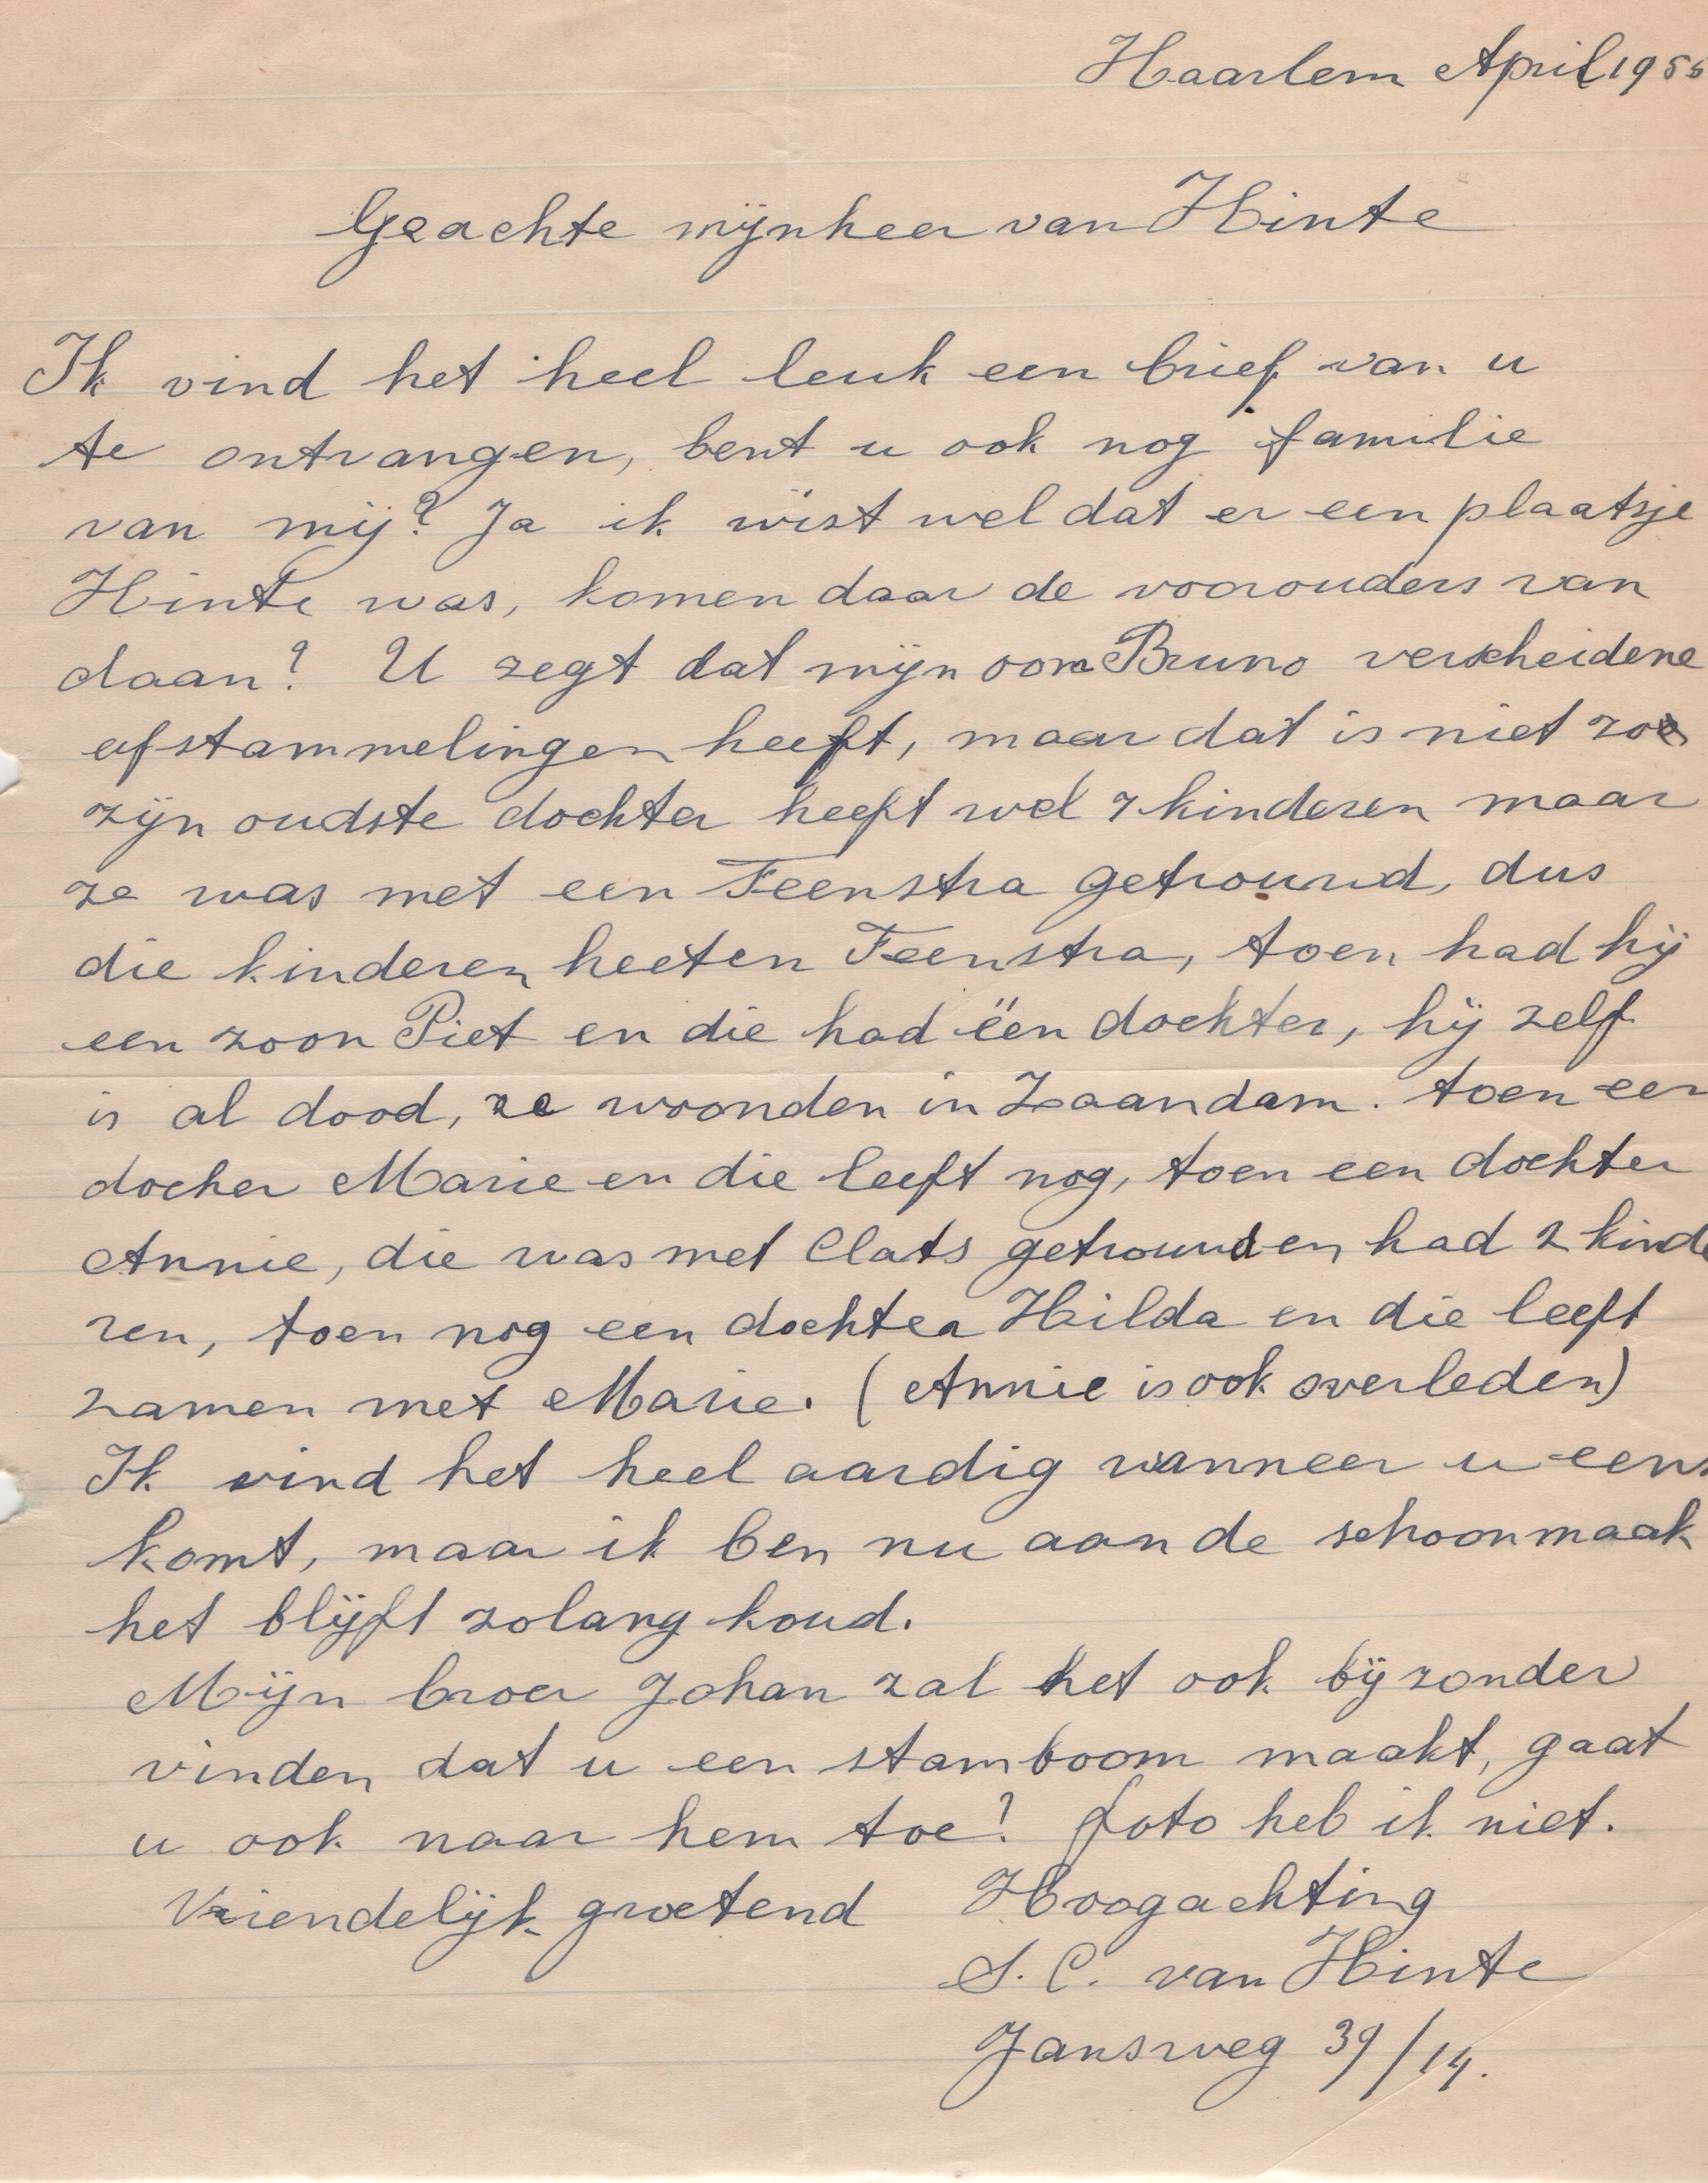 Haarlem April 1955
Geachte mijnheer van Hinte
Ik vind het heel leuk een brief van u
te ontvangen, bent u ook nog familie
van mij? Ja ik wist wel dat er een plaatsje
Hinte was, komen daar de voorouders van
daan? U zegt dat mijn oom Bruno verscheidene
afstammelingen heeft, maar dat is niet zoo
zijn oudste dochter heeft wel 7 kinderen maar
ze was met een Feenstra getrouwd, dus
die kinderen heeten Feenstra, toen had hij
een zoon Piet en die had één dochter, hij zelf
is al dood, ze woonden in Zaandam. toen een
docher Marie en die leeft nog, toen een dochter
Annie, die was met Clats getrouwd en had 2 kinde
ren, toen nog een dochter Hilda en die leeft
zamen met Marie. (Annie is ook overleden)
Ik vind het heel aardig wanneer u eens
komt, maar ik ben nu aan de schoonmaak
het blijft zolang koud.
Mijn broer Johan zal het ook bijzonder
vinden dat u een stamboom maakt, gaat
u ook naar hem toe? foto heb ik niet.
Vriendelijk groetend Hoogachting
S. C. van Hinte
Jansweg 39/14.